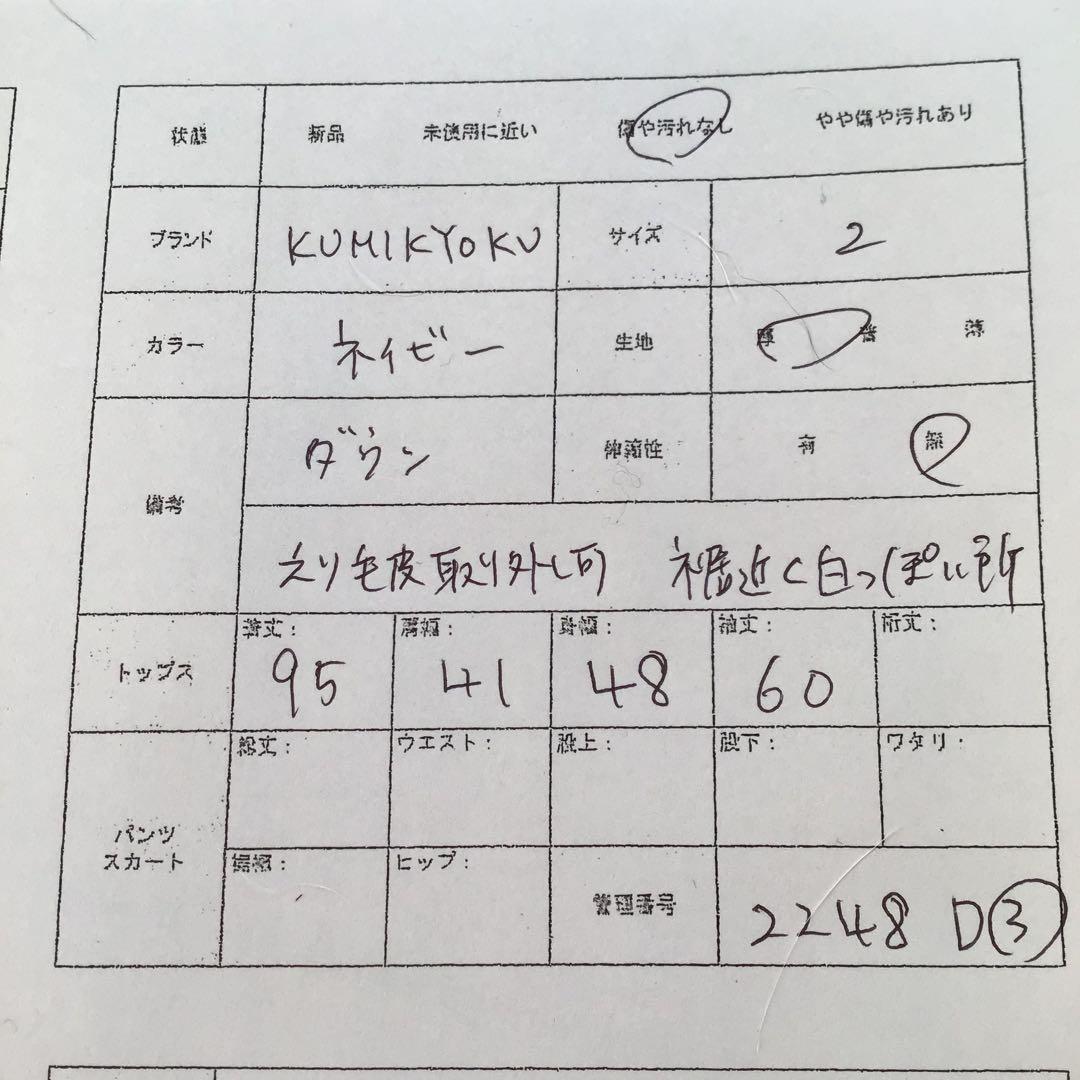 状態 新品 未使用に近い 傷や汚れなし やや傷や汚れあり
ブランド KUMIKYOKU サイズ 2
カラー ネイビー 生地 厚 普 薄
備考 ダウン 伸縮性 有 無
えり毛皮取り外し可 裾近く白っぽい所
トップス 着丈: 95 肩幅: 41 身幅: 48 袖丈: 60 裄丈:
パンツ スカート 総丈: ウエスト: 股上: 股下: ワタリ:
裾幅: ヒップ: 管理番号 2248 D③